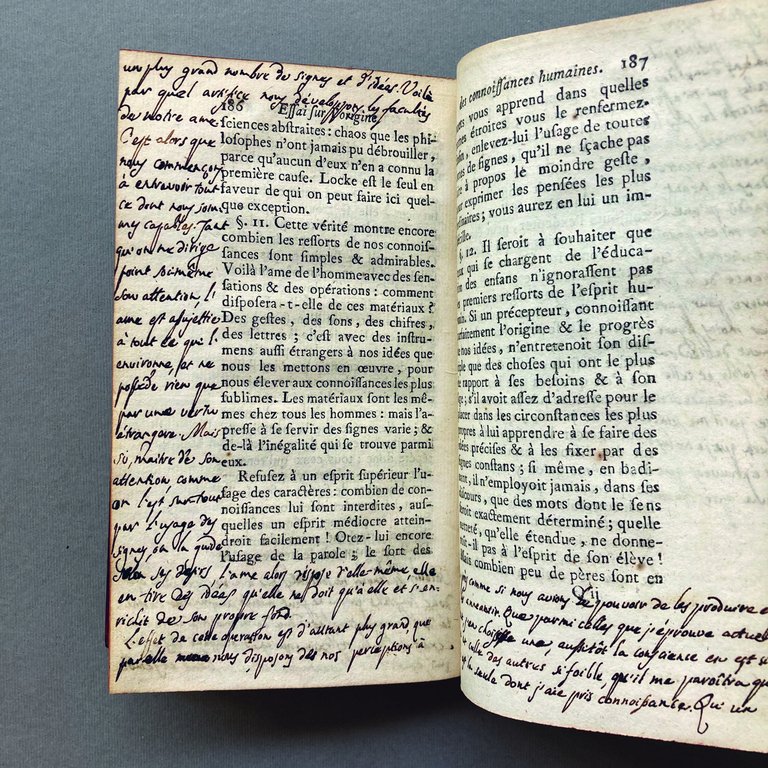 un plus grand nombre de signes et d'idées. Voilà
par quel artifice nous développons les facultés
186 Essai sur l'origine
de notre ame
C'est alors que
nous commençons
à entrevoir tout
ce dont nous som
mes capables. Tant
qu'on ne dirige
point soi même
son attention, l'
ame est assujettie
à tout ce qui l'
environne, et ne
possède rien que
par une vertu
étrangere. Mais
si, maitre de son
attention comme
on l'est surtout
par l'usage des
signes, on la guide
selon ses desirs, l'ame alors dispose d'elle-même, elle
en tire des idées qu'elle ne doit qu'à elle et s'en
richit de son propre fond.
L'effet de cette operation est d'autant plus grand que
par elle nous disposons des nos perceptions à
sciences abstraites : chaos que les phi-
losophes n'ont jamais pu débrouiller,
parce qu'aucun d'eux n'en a connu la
première cause. Locke est le seul en
faveur de qui on peut faire ici quel-
que exception.
§. 11. Cette vérité montre encore
combien les ressorts de nos connois-
sances sont simples & admirables.
Voilà l'ame de l'homme avec des sen-
sations & des opérations : comment
disposera-t-elle de ces matériaux ?
Des gestes, des sons, des chifres,
des lettres ; c'est avec des instru-
mens aussi étrangers à nos idées que
nous les mettons en œuvre, pour
nous élever aux connoissances les plus
sublimes. Les matériaux sont les mê-
mes chez tous les hommes : mais l'a-
dresse à se servir des signes varie ; &
de-là l'inégalité qui se trouve parmi
eux.
Refusez à un esprit supérieur l'u-
sage des caractères : combien de con-
noissances lui sont interdites, aus-
quelles un esprit médiocre attein-
droit facilement ! Otez-lui encore
l'usage de la parole ; le sort des
des connoissances humaines. 187
vous apprend dans quelles
étroites vous le renfermez.
enlevez-lui l'usage de toutes
de signes, qu'il ne sçache pas
à propos le moindre geste,
exprimer les pensées les plus
; vous aurez en lui un im-
§. 12. Il seroit à souhaiter que
qui se chargent de l'éduca-
des enfans n'ignorassent pas
premiers ressorts de l'esprit hu-
Si un précepteur, connoissant
l'origine & le progrès
nos idées, n'entretenoit son dis-
que des choses qui ont le plus
rapport à ses besoins & à son
; s'il avoit assez d'adresse pour le
dans les circonstances les plus
à lui apprendre à se faire des
précises & à les fixer par des
constans ; si même, en badi-
il n'employoit jamais, dans ses
que des mots dont le sens
exactement déterminé ; quelle
quelle étendue, ne donne-
-il pas à l'esprit de son élève !
Mais combien peu de pères sont en
Q ij
comme si nous avions le pouvoir de les produire
anéantir. Que parmi celles que j'éprouve
j'en choisisse une, aussitôt la conscience en est si
celle des autres si foible, qu'il me paroîtra que
la seule dont j'aie pris connoissance. Qu'un